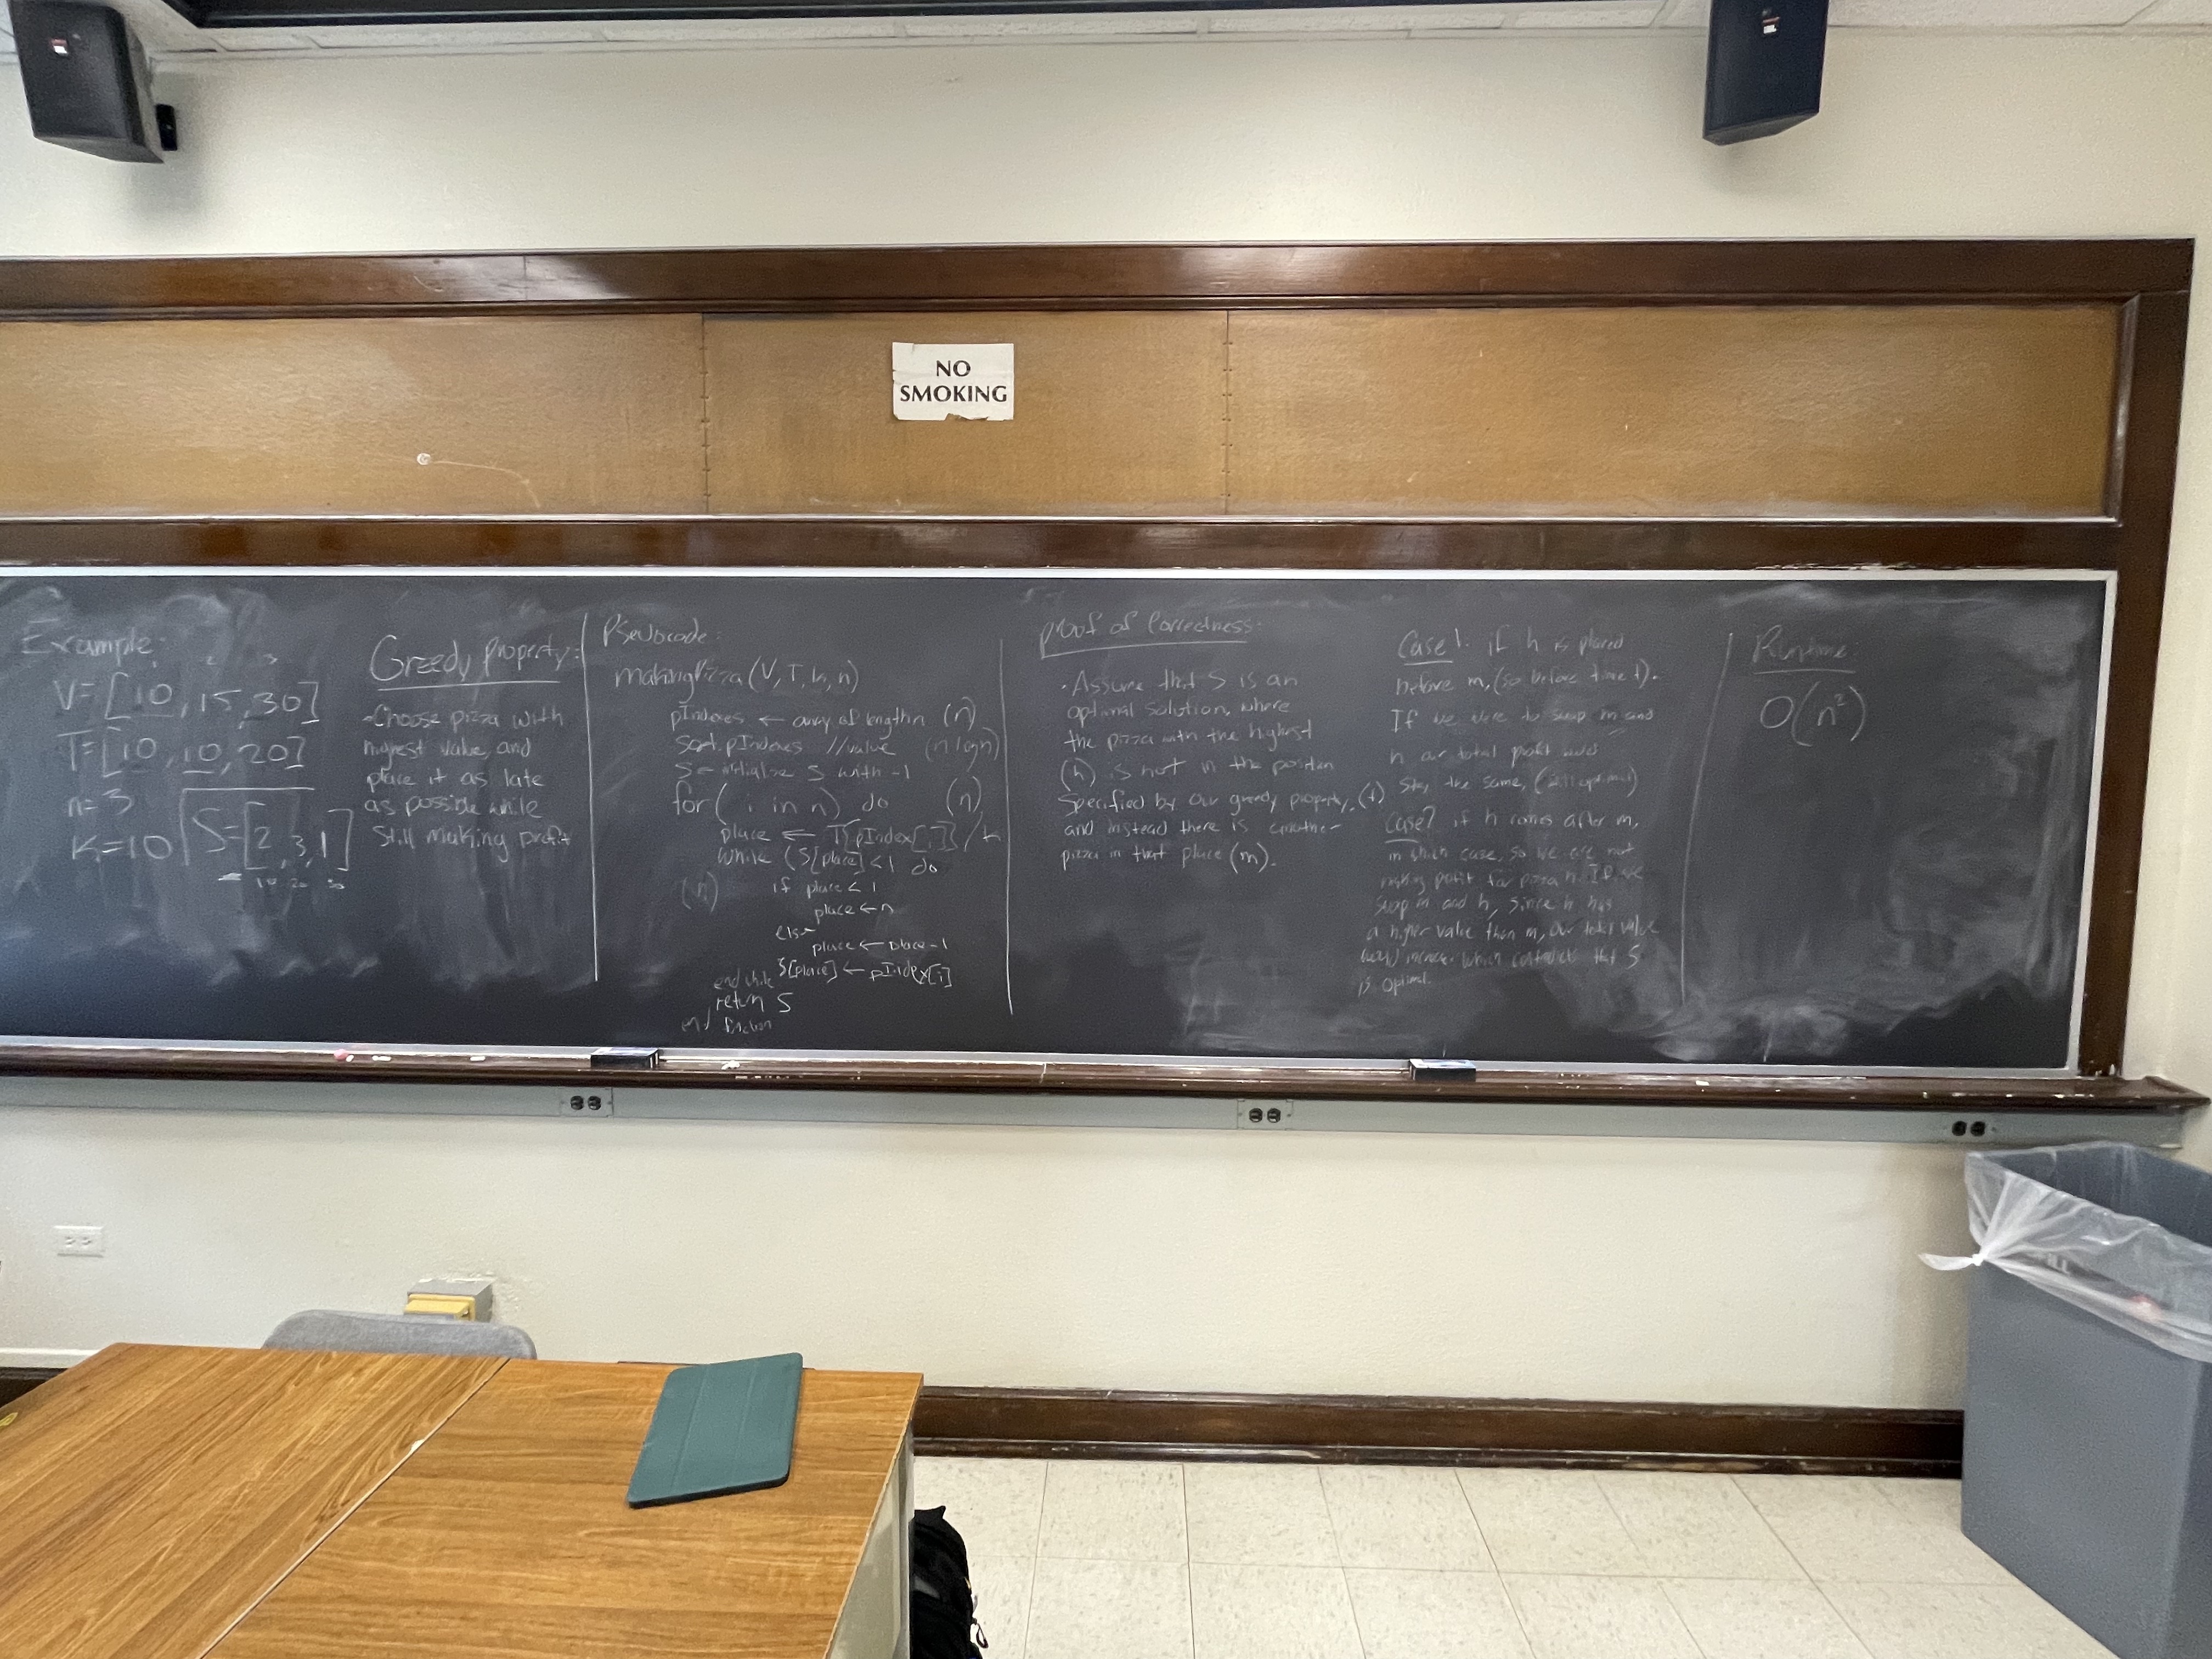 NO
SMOKING
Example:
1 2 3
V=[10, 15, 30]
T=[10, 10, 20]
n=3
K=10
S=[2, 3, 1]
10 20 30
Greedy Property:
-Choose pizza with
highest value, and
place it as late
as possible while
still making profit
Pseudocode:
makingPizza (V, T, k, n)
pIndexes ← array of length n (n)
sort pIndexes //value (n log n)
S ← initialize S with -1
for ( i in n) do (n)
place ← T[pIndex[i]] / k
while (S[place] < 1 do
(n) if place < 1
place ← n
else
place ← place - 1
S[place] ← pIndex[i]
end while
return S
end function
proof of Correctness:
· Assume that S is an
optimal solution, where
the pizza with the highest
(h) is not in the position
specified by our greedy property, (t)
and instead there is another
pizza in that place (m).
Case 1: if h is placed
before m, (so before time t).
If we were to swap m and
h our total profit would
stay the same, (still optimal)
Case 2 if h comes after m,
in which case, so we are not
making profit for pizza h. If we
swap m and h, since h has
a higher value than m, our total value
would increase which contradicts that S
is optimal.
Runtime:
O(n²)